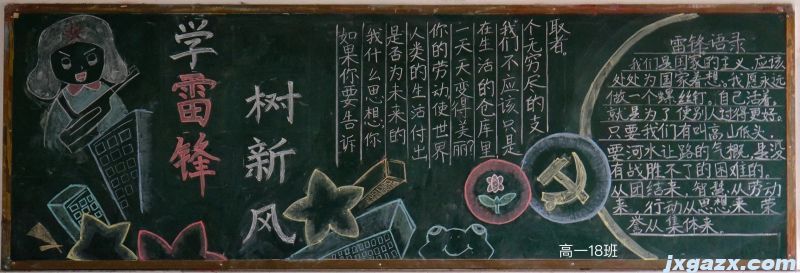 学雷锋
树新风
如果你要告诉
我什么思想,你
是否为未来的
人类的生活付出
你的劳动使世界
一天天变得美丽?
在生活的仓库里
我们不应该只是
个无穷尽的支
取者。
雷锋语录
我们是国家的主义,应该
处处为国家着想。我愿永远
做一个螺丝钉。自己活着,
就是为了使别人过得更好。
只要我们有叫高山低头,
要河水让路的气概,是没
有战胜不了的困难的。
从团结来,智慧从劳动
来,行动从思想来,荣
誉从集体来。
高一18班
jxgazx.com